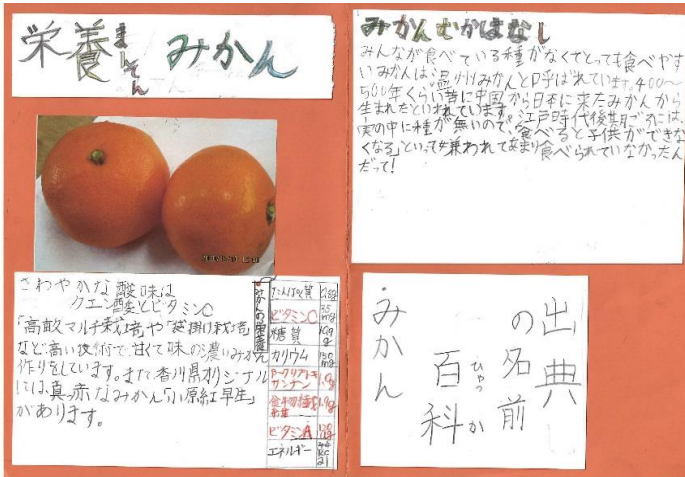 栄養まんてんみかん
みかんむかしばなし
みんなが食べている種がなくてとっても食べやす
いみかんは、温州みかんと呼ばれています。400〜
500年くらい昔に中国から日本に来たみかんから
生まれたといわれています。江戸時代後期ごろには、
実の中に種が無いので、「食べると子供ができな
くなる」といって嫌われてあまり食べられていなかったん
だって!
さわやかな酸味は
クエン酸とビタミンC
「高畝マルチ栽培」や「袋掛け栽培」
など高い技術で、甘くて味の濃いみかん
作りをしています。また香川県オリジナル
には、真っ赤なみかん「小原紅早生」
があります。
みかんの栄養
たんぱく質
ビタミンC 35mg
糖質
カリウム 150mg
β-クリプトキサンチン
食物繊維
ビタミンA
エネルギー
出典
の名前
百科
ひゃっか
みかん